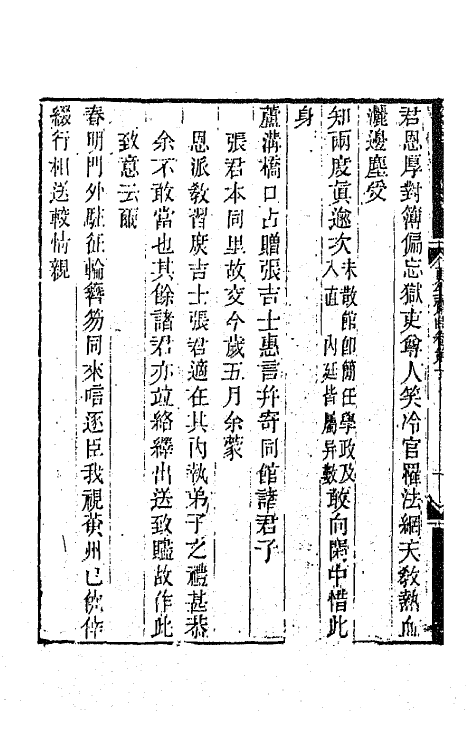 君恩厚對簿偏忘獄吏尊人笑冷官罹法網天敎熱血
灑邊塵受
知兩度眞逾次未散館卽簡任學政及入直內廷皆屬異數敢向閑中惜此
身
蘆溝橋口占贈張吉士惠言幷寄同館諸君子
張君本同里故交今歲五月余蒙
恩派敎習庶吉士張君適在其內執弟子之禮甚恭
余不敢當也其餘諸君亦竝絡繹出送致贐故作此
致意云爾
春明門外駐征輪簪笏同來唁逐臣我視黃州已僥倖
綴行相送較情親